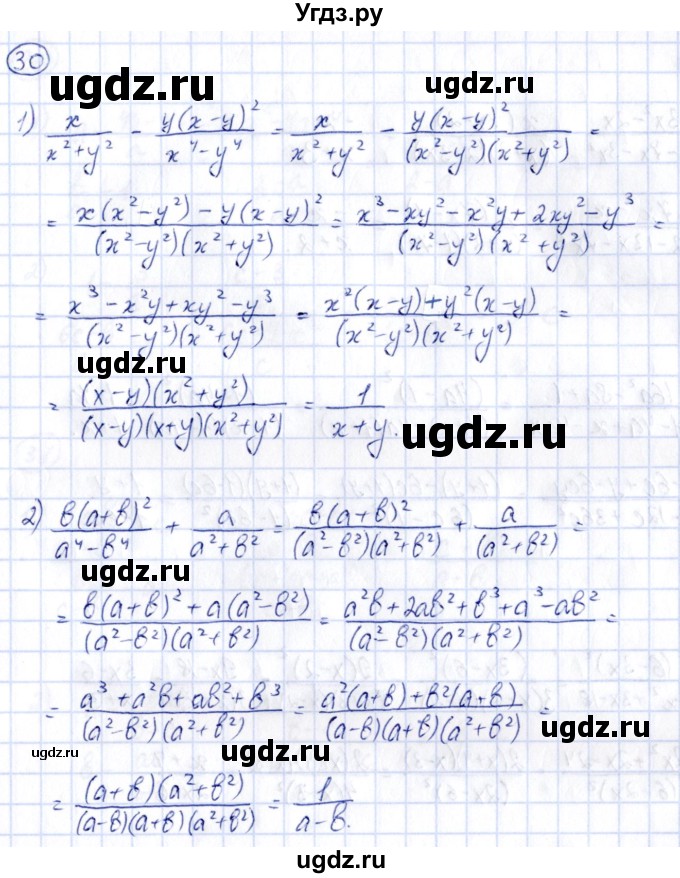 Угдз.ру
30 ugdz.ru ugdz.ru
1) x/(x²+y²) - y(x-y)²/(x⁴-y⁴) = x/(x²+y²) - y(x-y)²/((x²-y²)(x²+y²)) =
= (x(x²-y²)-y(x-y)²)/((x²-y²)(x²+y²)) = (x³-xy²-x²y+2xy²-y³)/((x²-y²)(x²+y²)) =
= (x³-x²y+xy²-y³)/((x²-y²)(x²+y²)) = (x²(x-y)+y²(x-y))/((x²-y²)(x²+y²)) =
ugdz.ru
= ((x-y)(x²+y²))/((x-y)(x+y)(x²+y²)) = 1/(x+y).
ugdz.ru
2) в(a+в)²/(a⁴-в⁴) + a/(a²+в²) = в(a+в)²/((a²-в²)(a²+в²)) + a/(a²+в²) =
= (в(a+в)²+a(a²-в²))/((a²-в²)(a²+в²)) = (a²в+2aв²+в³+a³-aв²)/((a²-в²)(a²+в²)) =
= (a³+a²в+aв²+в³)/((a²-в²)(a²+в²)) = (a²(a+в)+в²(a+в))/((a-в)(a+в)(a²+в²)) =
ugdz.ru ugdz.ru ugdz.ru
= ((a+в)(a²+в²))/((a-в)(a+в)(a²+в²)) = 1/(a-в).
ugdz.ru